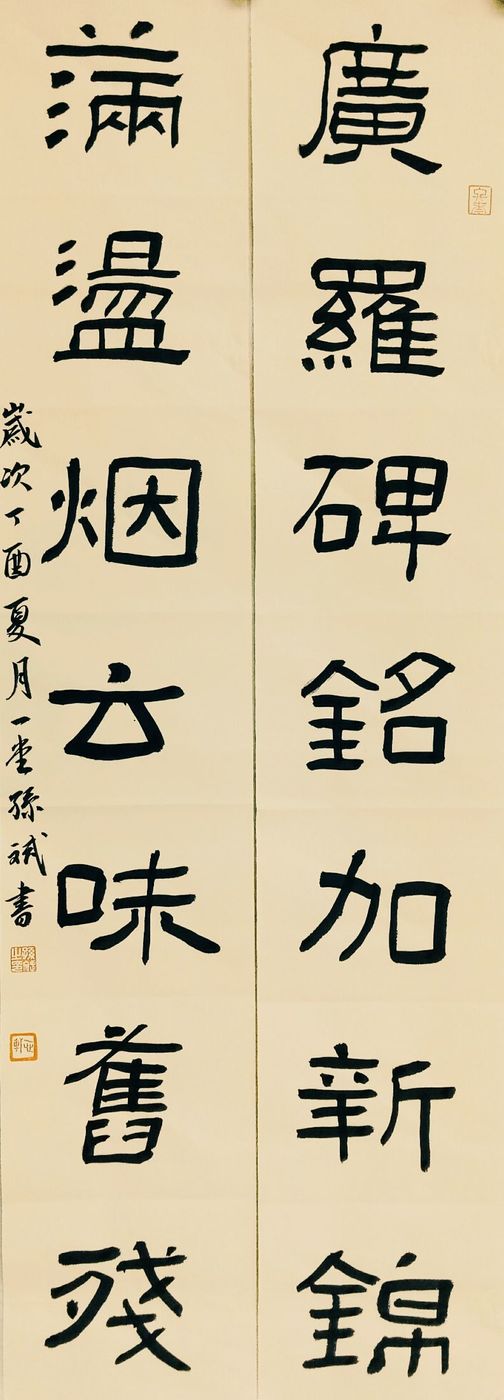 廣羅碑銘加新錦
滿盪烟云味舊殘
歲次丁酉夏月一堂孫斌書